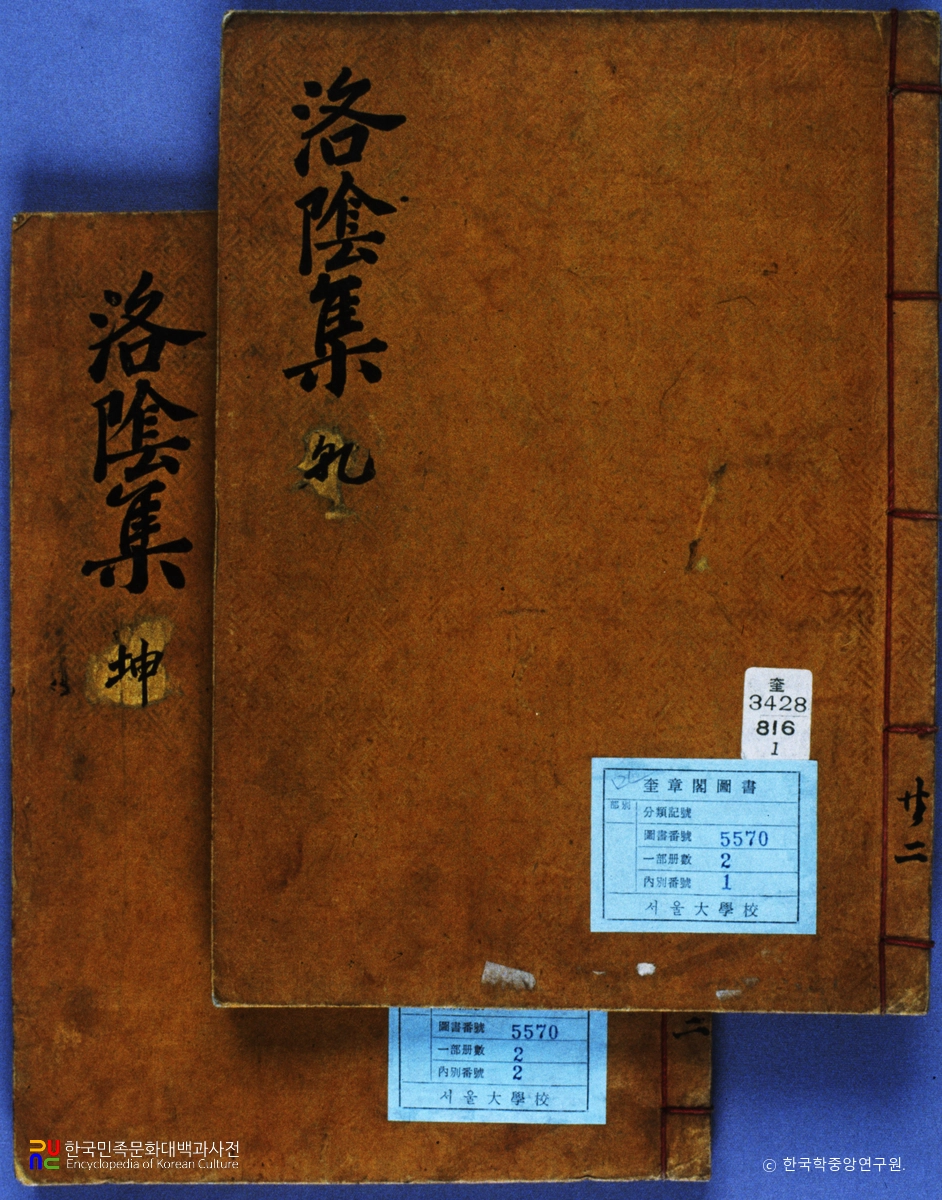 洛陰集
乾
奎
3428
816
1
奎章閣圖書
部別
分類記號
圖書番號 5570
一部册數 2
內別番號 1
서울大學校
共二
洛陰集
坤
圖書番號 5570
一部册數 2
內別番號 2
서울大學校
二
한국민족문화대백과사전
Encyclopedia of Korean Culture
© 한국학중앙연구원.